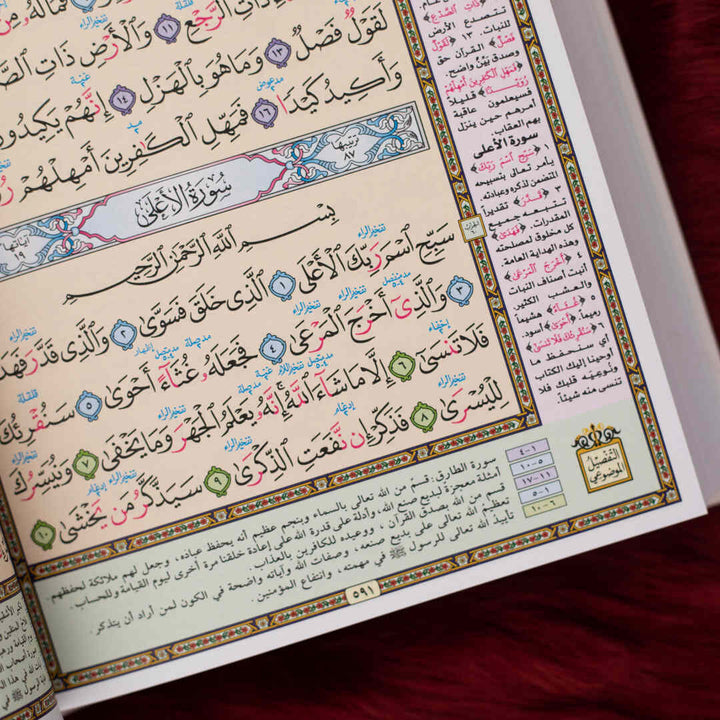 ذَاتِ الرَّجْعِ ١١ وَالْأَرْضِ ذَاتِ
لَقَوْلٌ فَصْلٌ ١٣ وَمَا هُوَ بِالْهَزْلِ ١٤ إِنَّهُمْ يَكِيدُونَ
وَأَكِيدُ كَيْدًا ١٦ فَمَهِّلِ الْكَافِرِينَ أَمْهِلْهُمْ
ترتيبها ٨٧
سُورَةُ الْأَعْلَىٰ
آياتها ١٩
بِسْمِ اللَّهِ الرَّحْمَٰنِ الرَّحِيمِ
سَبِّحِ اسْمَ رَبِّكَ الْأَعْلَى ١ الَّذِي خَلَقَ فَسَوَّىٰ ٢ وَالَّذِي قَدَّرَ فَهَدَىٰ
٣ وَالَّذِي أَخْرَجَ الْمَرْعَىٰ ٤ فَجَعَلَهُ غُثَاءً أَحْوَىٰ ٥ سَنُقْرِئُكَ
فَلَا تَنسَىٰ ٦ إِلَّا مَا شَاءَ اللَّهُ إِنَّهُ يَعْلَمُ الْجَهْرَ وَمَا يَخْفَىٰ ٧ وَنُيَسِّرُكَ
لِلْيُسْرَىٰ ٨ فَذَكِّرْ إِن نَّفَعَتِ الذِّكْرَىٰ ٩ سَيَذَّكَّرُ مَن يَخْشَىٰ ١٠
تتصدع الأرض
للنبات. ١٣
﴿فَصْلٌ﴾ القرآن حق
وصدق بيّن واضح.
﴿فَمَهِّلِ الْكَافِرِينَ أَمْهِلْهُمْ
رُوَيْدًا﴾ قليلاً
فسيعلمون عاقبة
أمرهم حين ينزل
بهم العقاب.
سورة الأعلى
١ ﴿سَبِّحِ اسْمَ رَبِّكَ﴾
يأمر تعالى بتسبيحه
المتضمن لذكره وعبادته.
٣ ﴿قَدَّرَ﴾ تقديراً
تتبعه جميع
المقدرات. ﴿فَهَدَىٰ﴾
كل مخلوق لمصلحته
وهذه الهداية العامة
٤ ﴿أَخْرَجَ الْمَرْعَىٰ﴾
أنبت أصناف النبات
والعشب الكثير
٥ ﴿غُثَاءً﴾ هشيماً
رميماً. ﴿أَحْوَىٰ﴾ أسود
٦ ﴿سَنُقْرِئُكَ فَلَا تَنسَىٰ﴾
أي سنحفظ ما
أوحينا إليك الكتاب
ونوعيه قلبك فلا
تنسى منه شيئاً.
التفصيل
الموضوعي
١-٤ سورة الطارق: قسم من الله تعالى بالسماء وبنجم عظيم أنه يحفظ عباده، وجعل لهم ملائكة لحفظهم
٥-١٠ أمثلة معجزة لبديع صنع الله، وأدلة على قدرة الله على إعادة خلقنا مرة أخرى ليوم القيامة وللحساب.
١١-١٧ قسم من الله بصدق القرآن، ووعيده للكافرين بالعذاب.
١-٥ تعظيم الله تعالى على بديع صنعه، وصفات الله وآياته واضحة في الكون لمن أراد أن يتذكر.
٦-١٠ تأييد الله تعالى للرسول ﷺ في مهمته، وانتفاع المؤمنين.
٥٩١